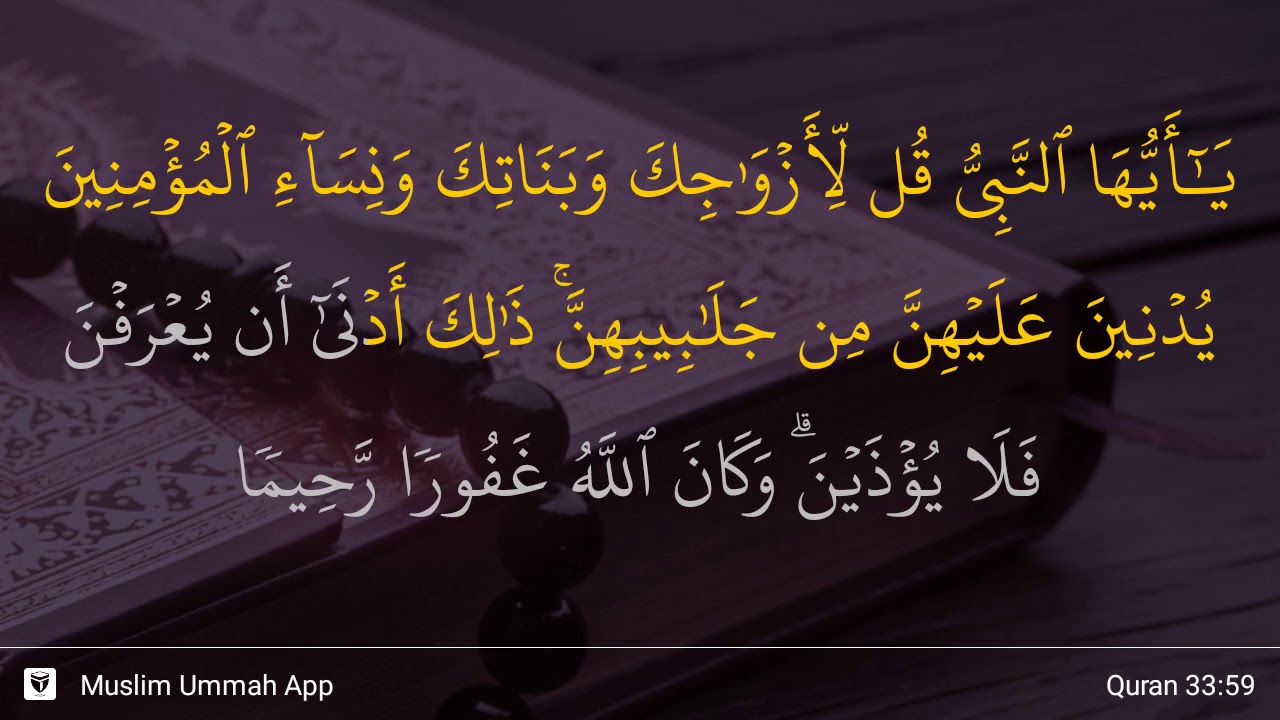 يَـٰٓأَيُّهَا ٱلنَّبِىُّ قُل لِّأَزْوَٰجِكَ وَبَنَاتِكَ وَنِسَآءِ ٱلْمُؤْمِنِينَ
يُدْنِينَ عَلَيْهِنَّ مِن جَلَـٰبِيبِهِنَّ ۚ ذَٰلِكَ أَدْنَىٰٓ أَن يُعْرَفْنَ
فَلَا يُؤْذَيْنَ ۗ وَكَانَ ٱللَّهُ غَفُورًا رَّحِيمًا
Muslim Ummah App
Quran 33:59